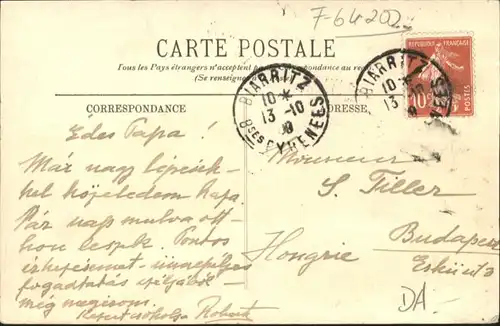 F-64202
CARTE POSTALE
Tous les Pays étrangers n'acceptent pas la correspondance au re
(Se renseigner
CORRESPONDANCE
DRESSE,
BIARRITZ
10 *
13 -10
Bses PYRENEES
BIARRITZ
10 *
13 -10
REPUBLIQUE FRANÇAISE
10c
POSTES
Édes Papa!
Már nagy lépések-
kel közeledem haza.
Pár nap mulva ott-
hon leszek. Pontos
érkezésemet ünnepélyes
fogadtatás céljából
még megirom.
Kezeit csókolja Robert
Monsieur
S. Tiller
Budapest
Hongrie
Eskü tér
DA-